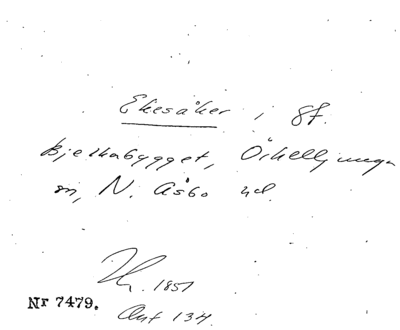 Ekesåker i gf.
Bjelkabygget, Örkelljunga
sn, N. Åsbo hd.
1851
Nr 7479.
Ant 134